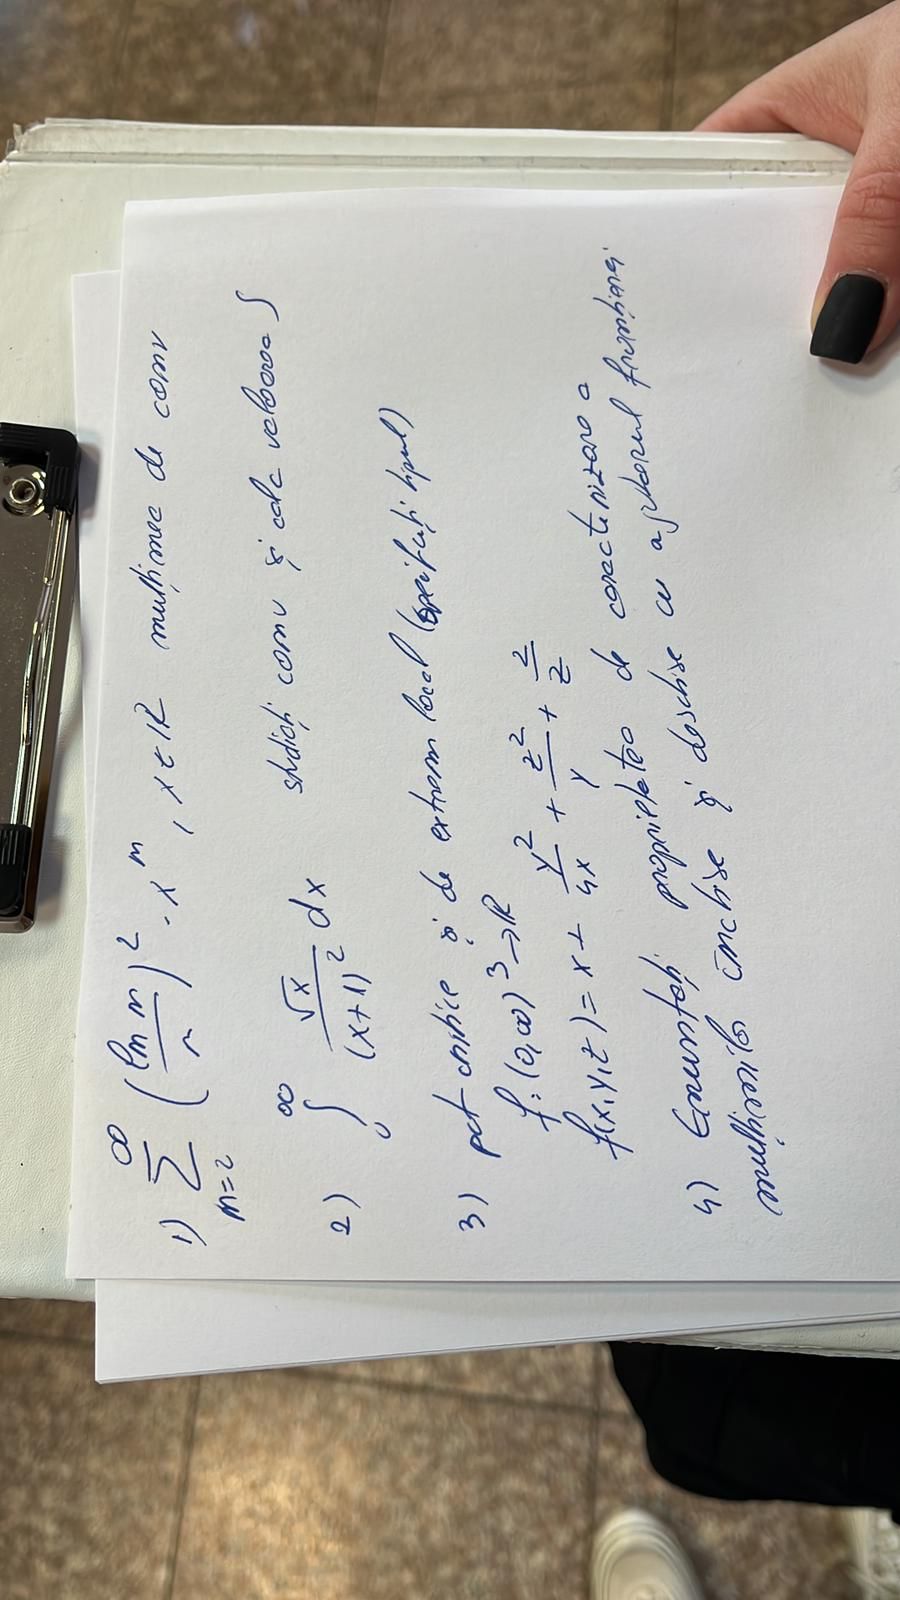 1) ∞ ∑ n=2 (ln n / n)² · xⁿ, x ∈ ℝ mulțimea de conv
2) ∞ ∫ 0 √x / (x+1)² dx studiați conv și calc valoarea ∫
3) pct critice și de extrem local (specificați tipul)
f: (0,∞)³ → ℝ
f(x,y,z) = x + y²/4x + z²/y + 2/z
4) Enunțați proprietatea de caracterizare a
mulțimilor închise și deschise cu ajutorul frontierei